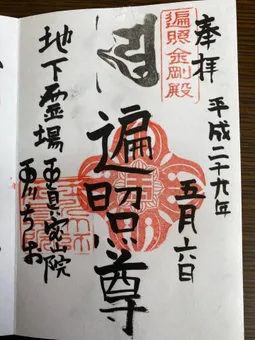 奉拝
平成二十九年
五月六日
遍照金剛殿
遍照尊
地下霊場
玉眞密院